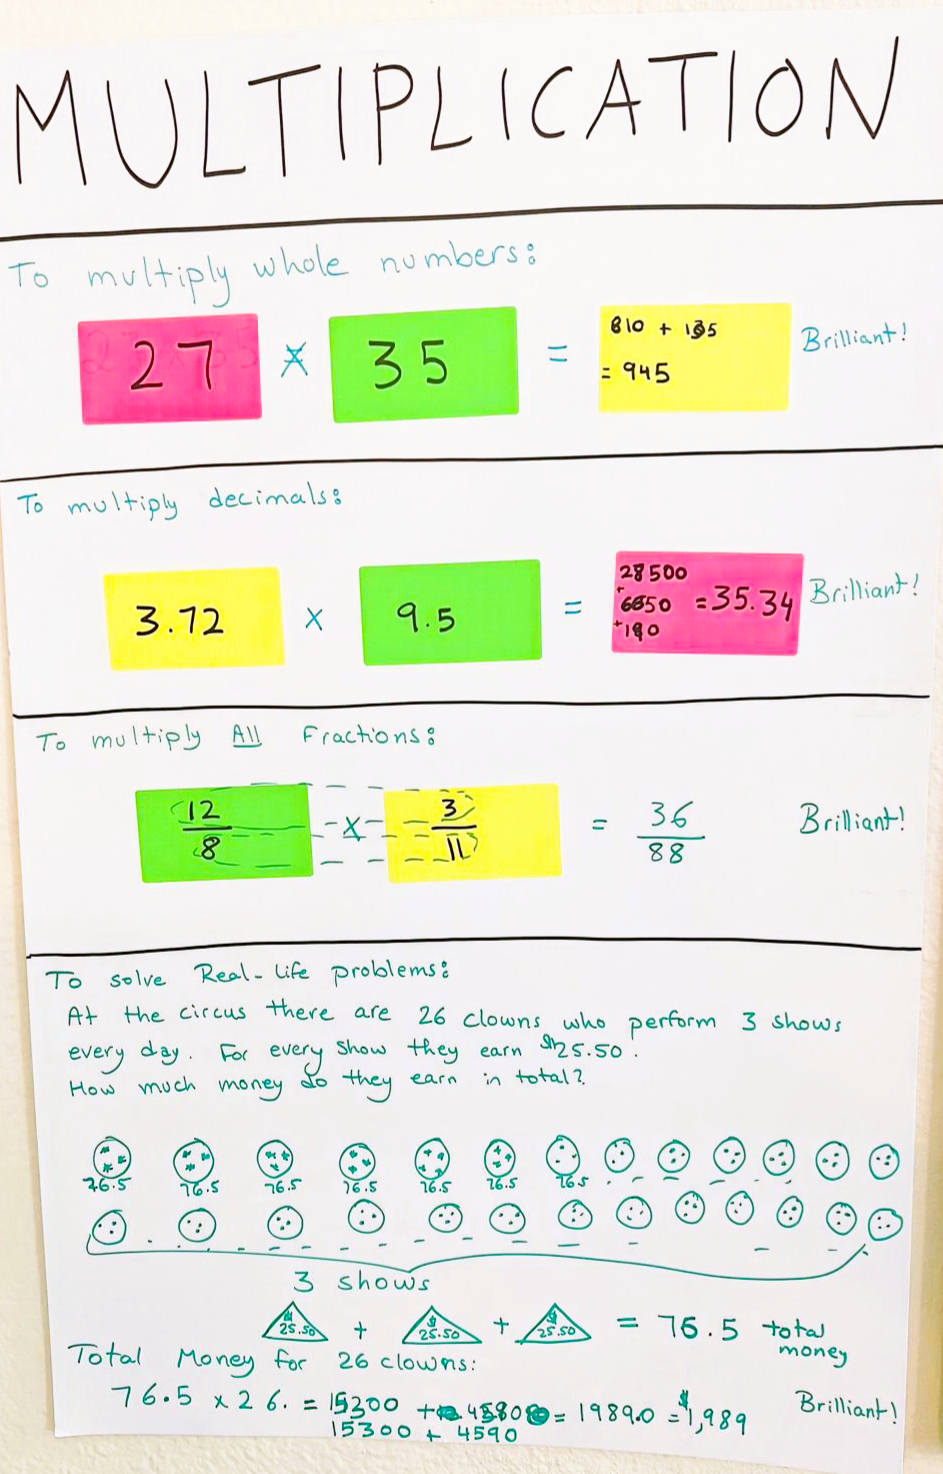 MULTIPLICATION
To multiply whole numbers:
27 x 35 = 810 + 135 Brilliant!
= 945
To multiply decimals:
3.72 x 9.5 = 28500 + 6650 + 190 = 35.34 Brilliant!
To multiply All Fractions:
12/8 x 3/11 = 36/88 Brilliant!
To solve Real-Life problems:
At the circus there are 26 clowns who perform 3 shows
every day. For every show they earn $25.50.
How much money do they earn in total?
76.5 76.5 76.5 76.5 76.5 76.5 76.5
3 shows
$ 25.50 + $ 25.50 + $ 25.50 = 76.5 total
money
Total Money for 26 clowns:
76.5 x 26. = 15300 + = 1989.0 = $1,989 Brilliant!
15300 + 4590